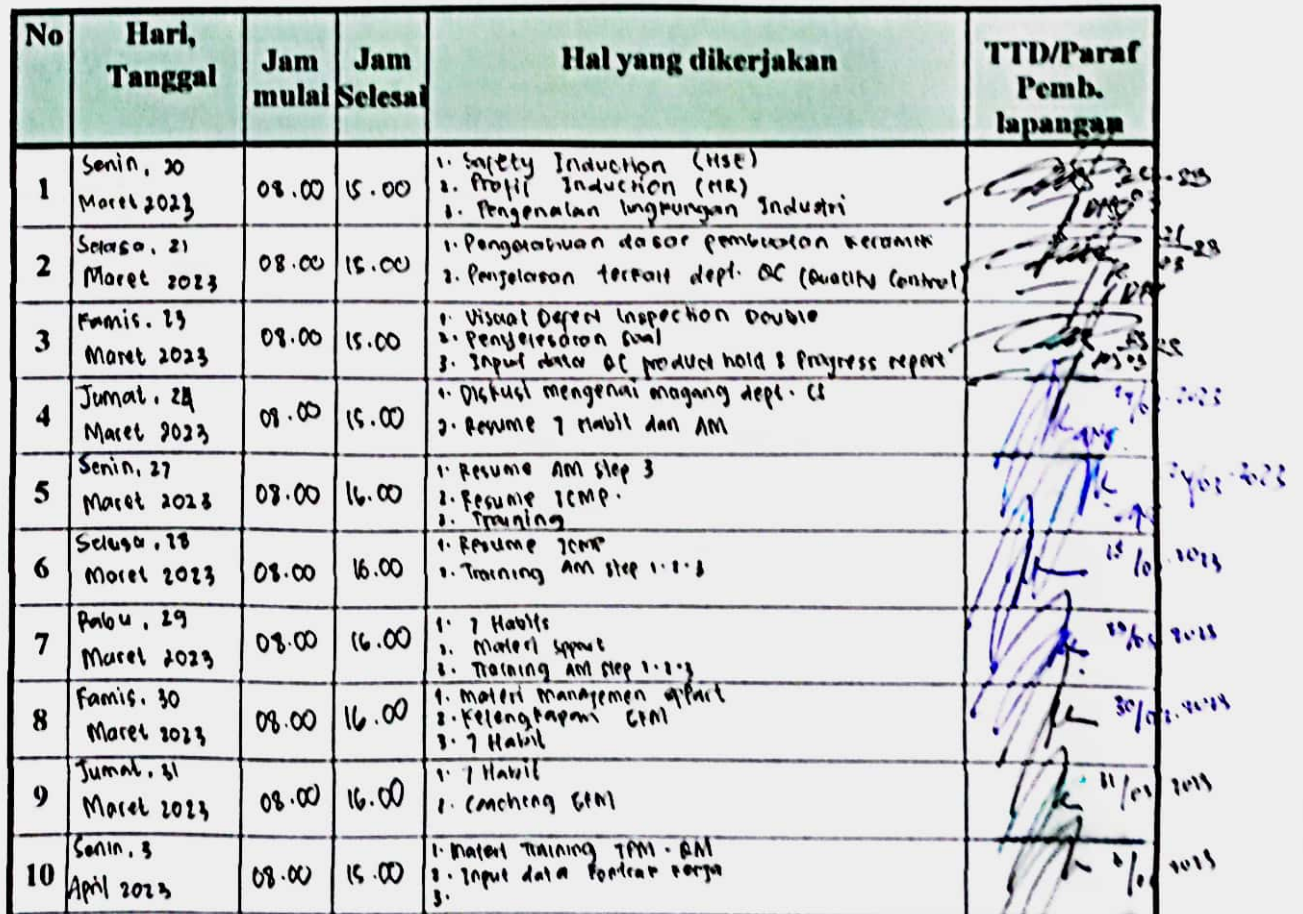 No Hari, Tanggal Jam mulai Jam Selesai Hal yang dikerjakan TTD/Paraf Pemb. lapangan
1 Senin, 20 Maret 2023 08.00 15.00
1. Safety Induction (HSE)
2. Profil Induction (HR)
3. Pengenalan lingkungan Industri
2 Selasa, 21 Maret 2023 08.00 15.00
1. Pengetahuan dasar pembuatan keramik
2. Penjelasan terkait dept. QC (Quality Control)
3 Kamis, 23 Maret 2023 08.00 15.00
1. Visual Defect Inspection Double
2. Penyelesaian Soal
3. Input data QC product hold & Progress report
4 Jumat, 24 Maret 2023 08.00 15.00
1. Diskusi mengenai magang dept. CS
2. Resume 7 Habit dan AM
5 Senin, 27 Maret 2023 08.00 16.00
1. Resume AM step 3
2. Resume
3. Training
6 Selasa, 28 Maret 2023 08.00 16.00
1. Resume
2. Training AM step 1.2.3
7 Rabu, 29 Maret 2023 08.00 16.00
1. 7 Habits
2. Materi
3. Training AM step 1.2.3
8 Kamis, 30 Maret 2023 08.00 16.00
1. Materi Managemen
2. Kelengkapan
3. 7 Habit
30/03.2023
9 Jumat, 31 Maret 2023 08.00 16.00
1. 7 Habit
2.
10 Senin, 3 April 2023 08.00 15.00
1. Materi Training
2. Input data kontrak kerja
3.